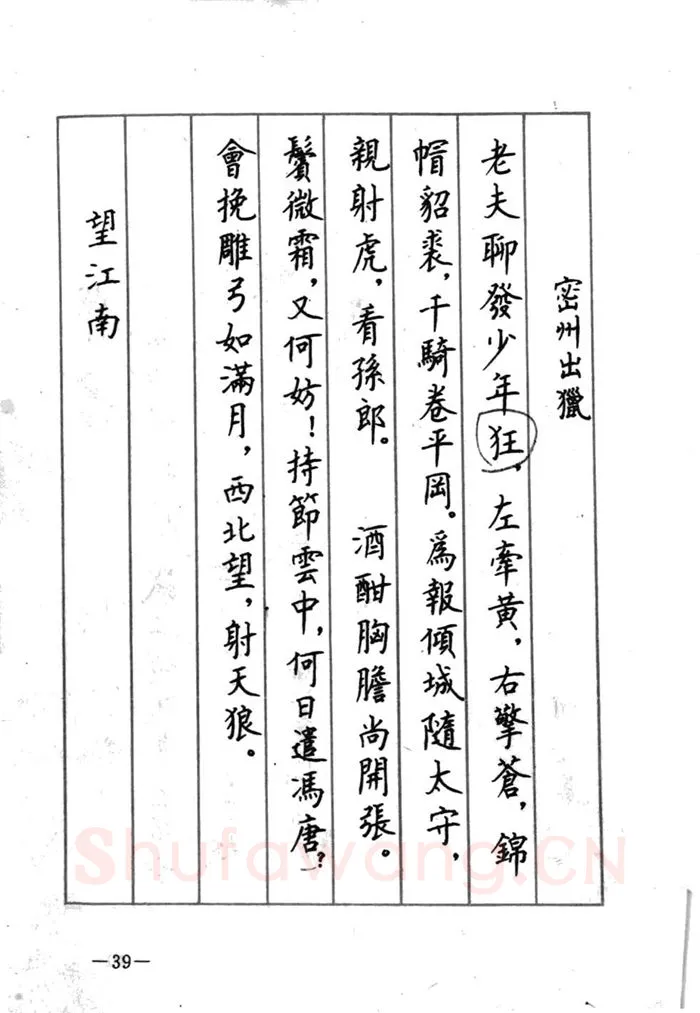 密州出獵
老夫聊發少年狂，左牽黃，右擎蒼，錦
帽貂裘，千騎卷平岡。爲報傾城隨太守，
親射虎，看孫郎。　酒酣胸膽尚開張。
鬢微霜，又何妨！持節雲中，何日遣馮唐？
會挽雕弓如滿月，西北望，射天狼。
望江南
Shufawang.CN
—39—